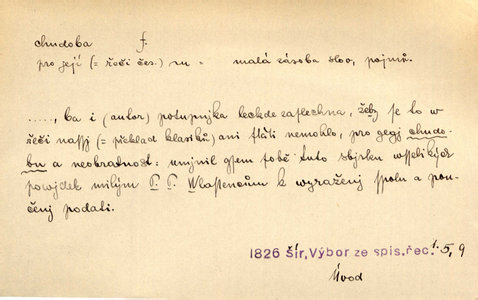 chudoba f.
pro její (= řeči čes.) m = malá zásoba slov, pojmů.
....., ba i (autor) potupnjka leckde zaslechna, žeby se to w
řeči nassj (= překlad klassiků) ani státi nemohlo, pro gegj chudo-
bu a neobratnost: umjnil gsem sobě tuto sbjrku wsselikých
powjdek milým P. P. Wlastencům k wyraženj spolu a pou-
čenj podati.
1826 Šír, Výbor ze spis. řec. 1. 5, 9
Úvod